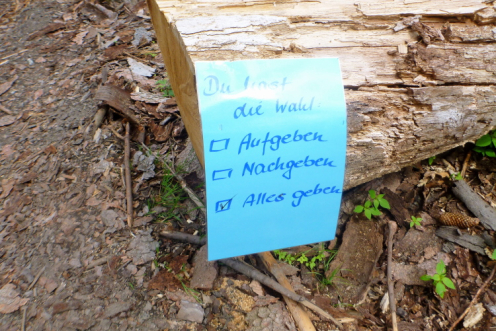 Du hast
die Wahl:
☐ Aufgeben
☐ Nachgeben
☑ Alles geben